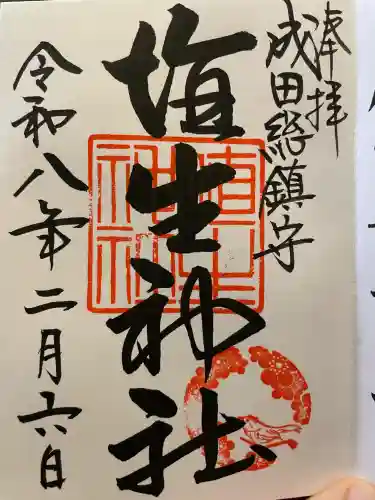 奉拝
成田総鎮守
埴生神社
令和八年二月六日
埴生神社